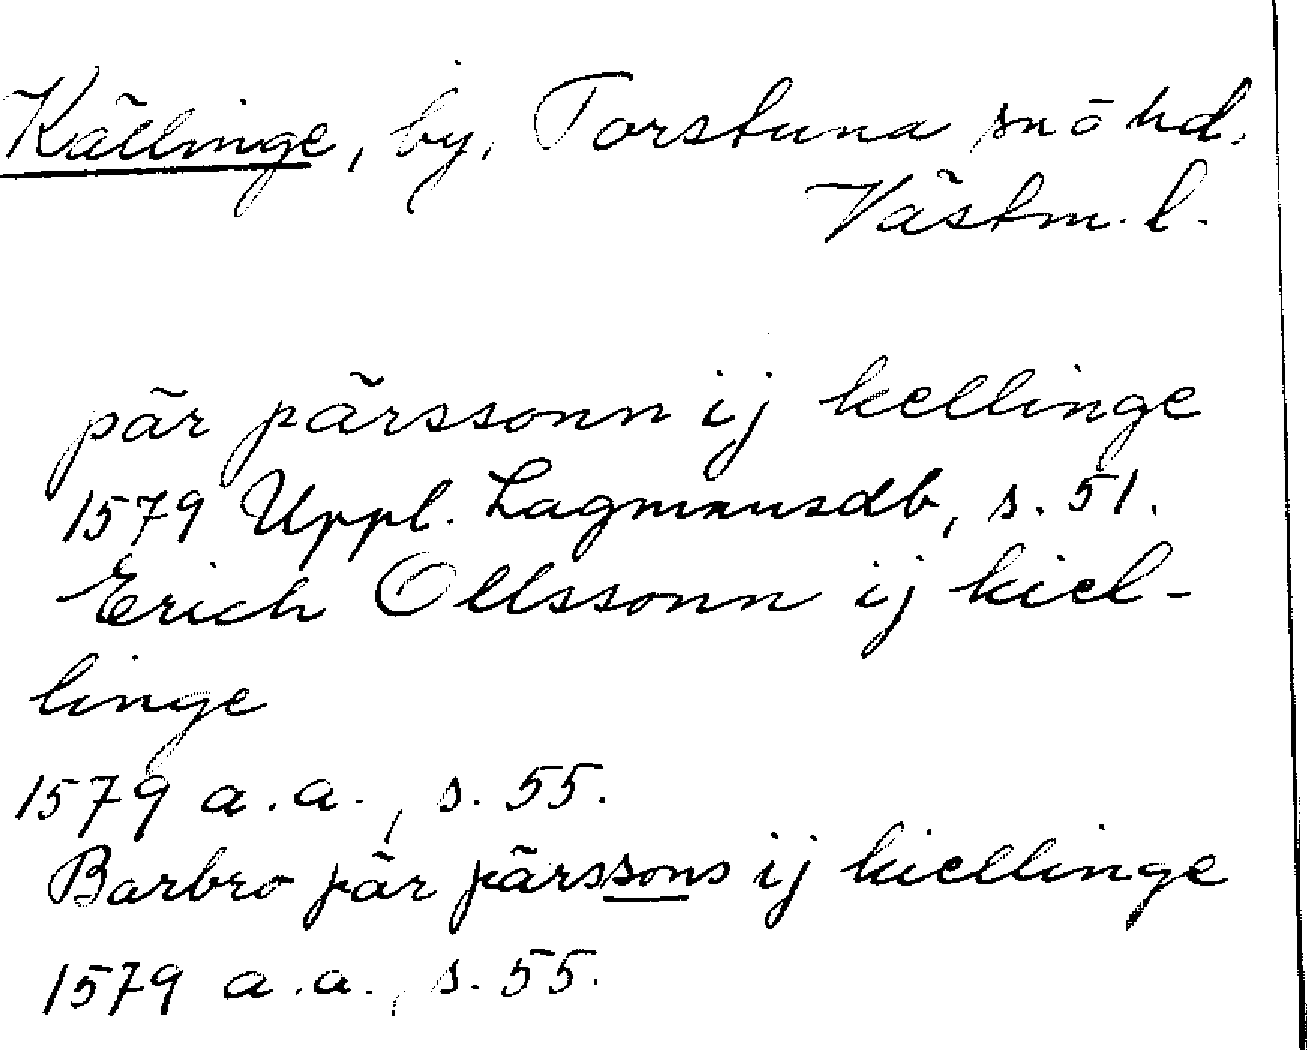 Källinge, by, Torstuna sn ö hd.
Västm. l.
pär pärssonn ij kellinge
1579 Uppl. Lagmansdb, s. 51.
Erich Ollssonn ij kiel-
linge
1579 a.a., s. 55.
Barbro pär pärssons ij kiellinge
1579 a.a., s. 55.